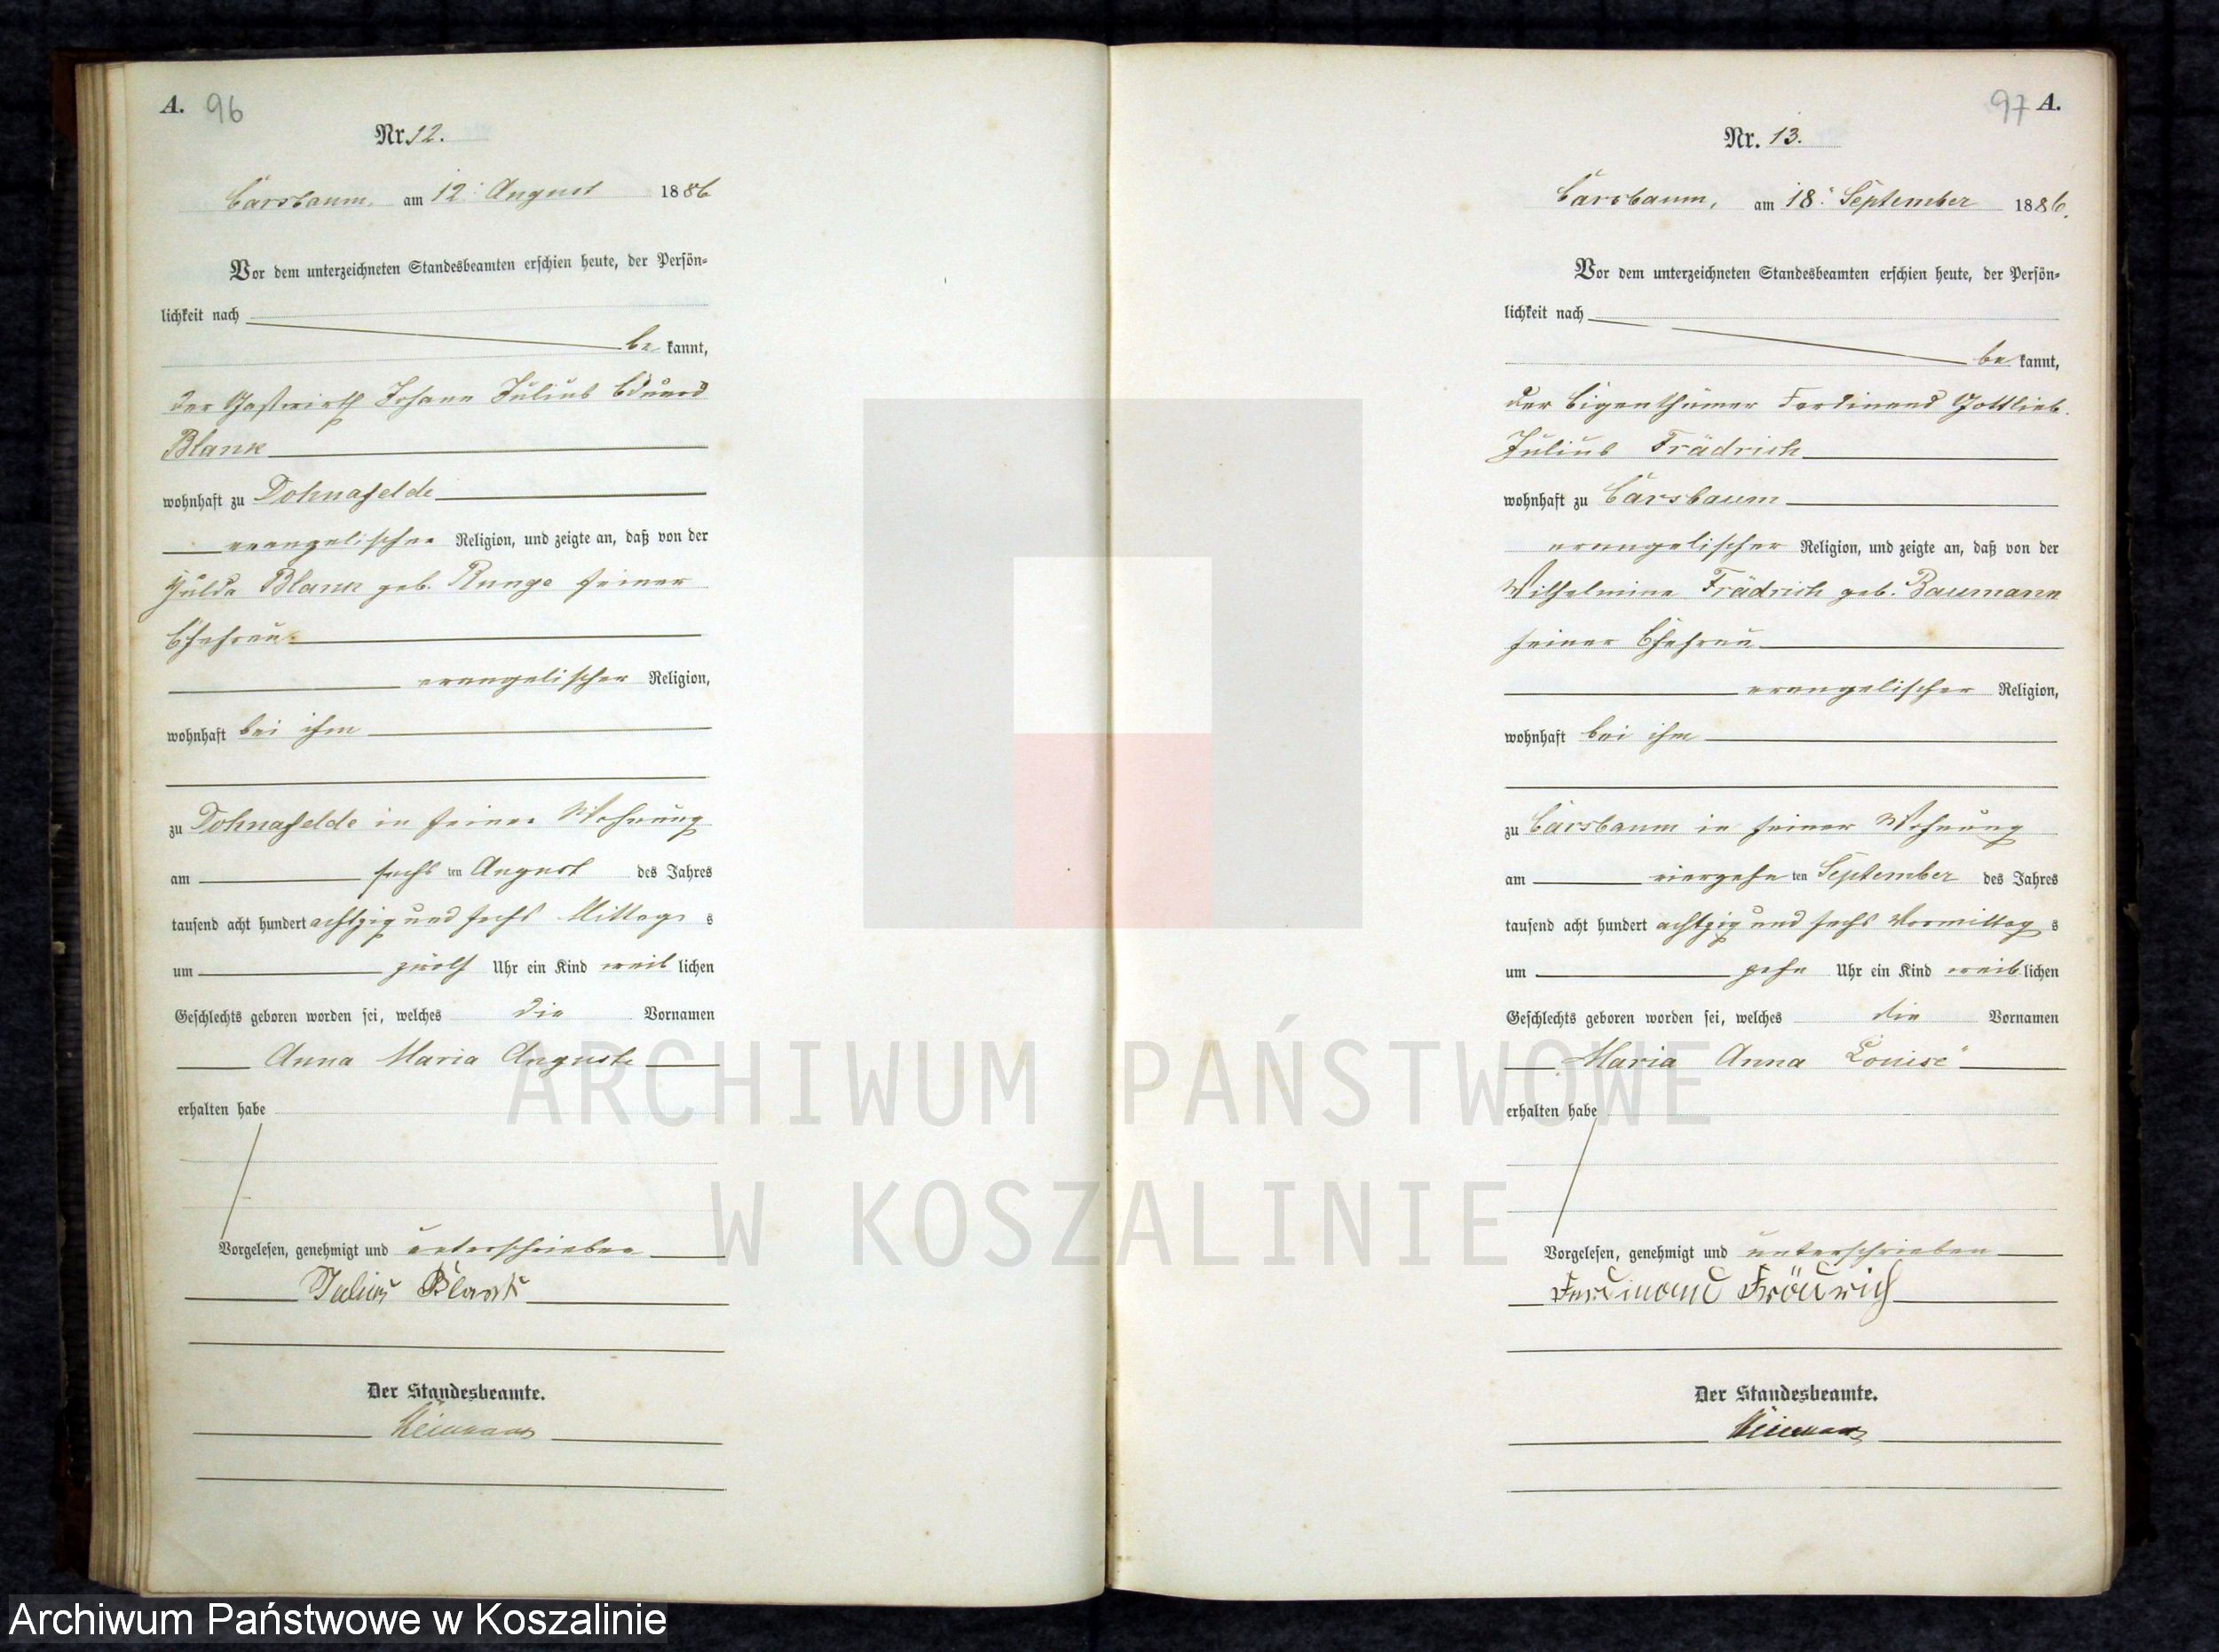 A. 96
Nr. 12.
Carsbaum, am 12. August 1886
Vor dem unterzeichneten Standesbeamten erschien heute, der Persön-
lichkeit nach
be kannt,
der Gastwirth Johann Julius Eduard
Blank
wohnhaft zu Dohnafelde
evangelischer Religion, und zeigte an, daß von der
Hulda Blank geb. Runge seiner
Ehefrau
evangelischer Religion,
wohnhaft bei ihm
zu Dohnafelde in seiner Wohnung
am sechs ten August des Jahres
tausend acht hundert achtzig und sechs Mittag s
um zwölf Uhr ein Kind weib lichen
Geschlechts geboren worden sei, welches die Vornamen
Anna Maria Auguste
erhalten habe
Vorgelesen, genehmigt und unterschrieben
Julius Blank
Der Standesbeamte.
97 A.
Nr. 13.
Carsbaum, am 18. September 1886.
Vor dem unterzeichneten Standesbeamten erschien heute, der Persön-
lichkeit nach
be kannt,
der Eigenthümer Ferdinand Gottlieb
Julius Frädrich
wohnhaft zu Carsbaum
evangelischer Religion, und zeigte an, daß von der
Wilhelmine Frädrich geb. Baumann
seiner Ehefrau
evangelischer Religion,
wohnhaft bei ihm
zu Carsbaum in seiner Wohnung
am vierzehn ten September des Jahres
tausend acht hundert achtzig und sechs Vormittag s
um zehn Uhr ein Kind weib lichen
Geschlechts geboren worden sei, welches die Vornamen
Maria Anna Louise
erhalten habe
Vorgelesen, genehmigt und unterschrieben
Ferdinand Frädrich
Der Standesbeamte.
ARCHIWUM PAŃSTWOWE
W KOSZALINIE
Archiwum Państwowe w Koszalinie